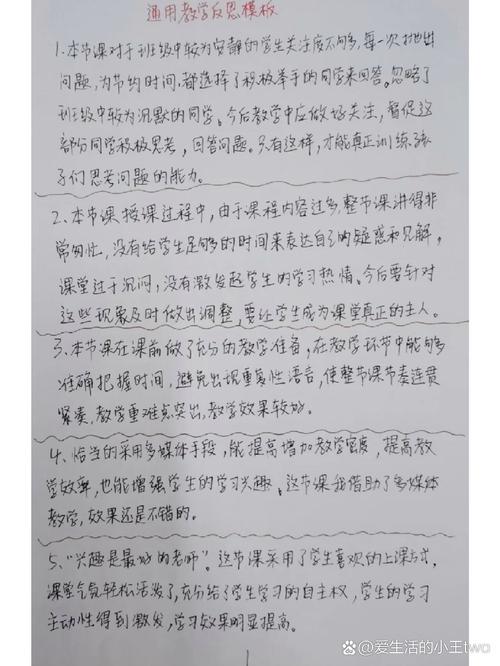 通用教学反思模板
1.本节课对于班级中较为安静的学生关注度不够多,每一次抛出
问题,为节约时间,都选择了积极举手的同学来回答。忽略了
班级中较为沉默的同学。今后教学中应做好关注,督促这
部分同学积极思考,回答问题。只有这样,才能真正训练孩
子们思考问题的能力。
2.本节课授课过程中,由于课程内容过多,整节课讲得非
常匆忙,没有给学生足够的时间来表达自己的疑惑和见解,
课堂过于沉闷,没有激发起学生的学习热情。今后要针对
这些现象及时做出调整,要让学生成为课堂真正的主人。
3.本节课在课前做了充分的教学准备,在教学环节中能够
准确把握时间,避免出现重复性语言,使整节课节奏连贯
紧凑,教学重难点突出,教学效果较好。
4、恰当的采用多媒体手段,能提高增加教学密度,提高教
学效率,也能增强学生的学习兴趣。这节课我借助了多媒体
教学,效果还是不错的。
5、“兴趣是最好的老师”。这节课采用了学生喜欢的上课方式,
课堂气氛轻松活泼了,充分给了学生学习的自主权,学生的学习
主动性得到激发,学习效果明显提高。
1
@爱生活的小王two